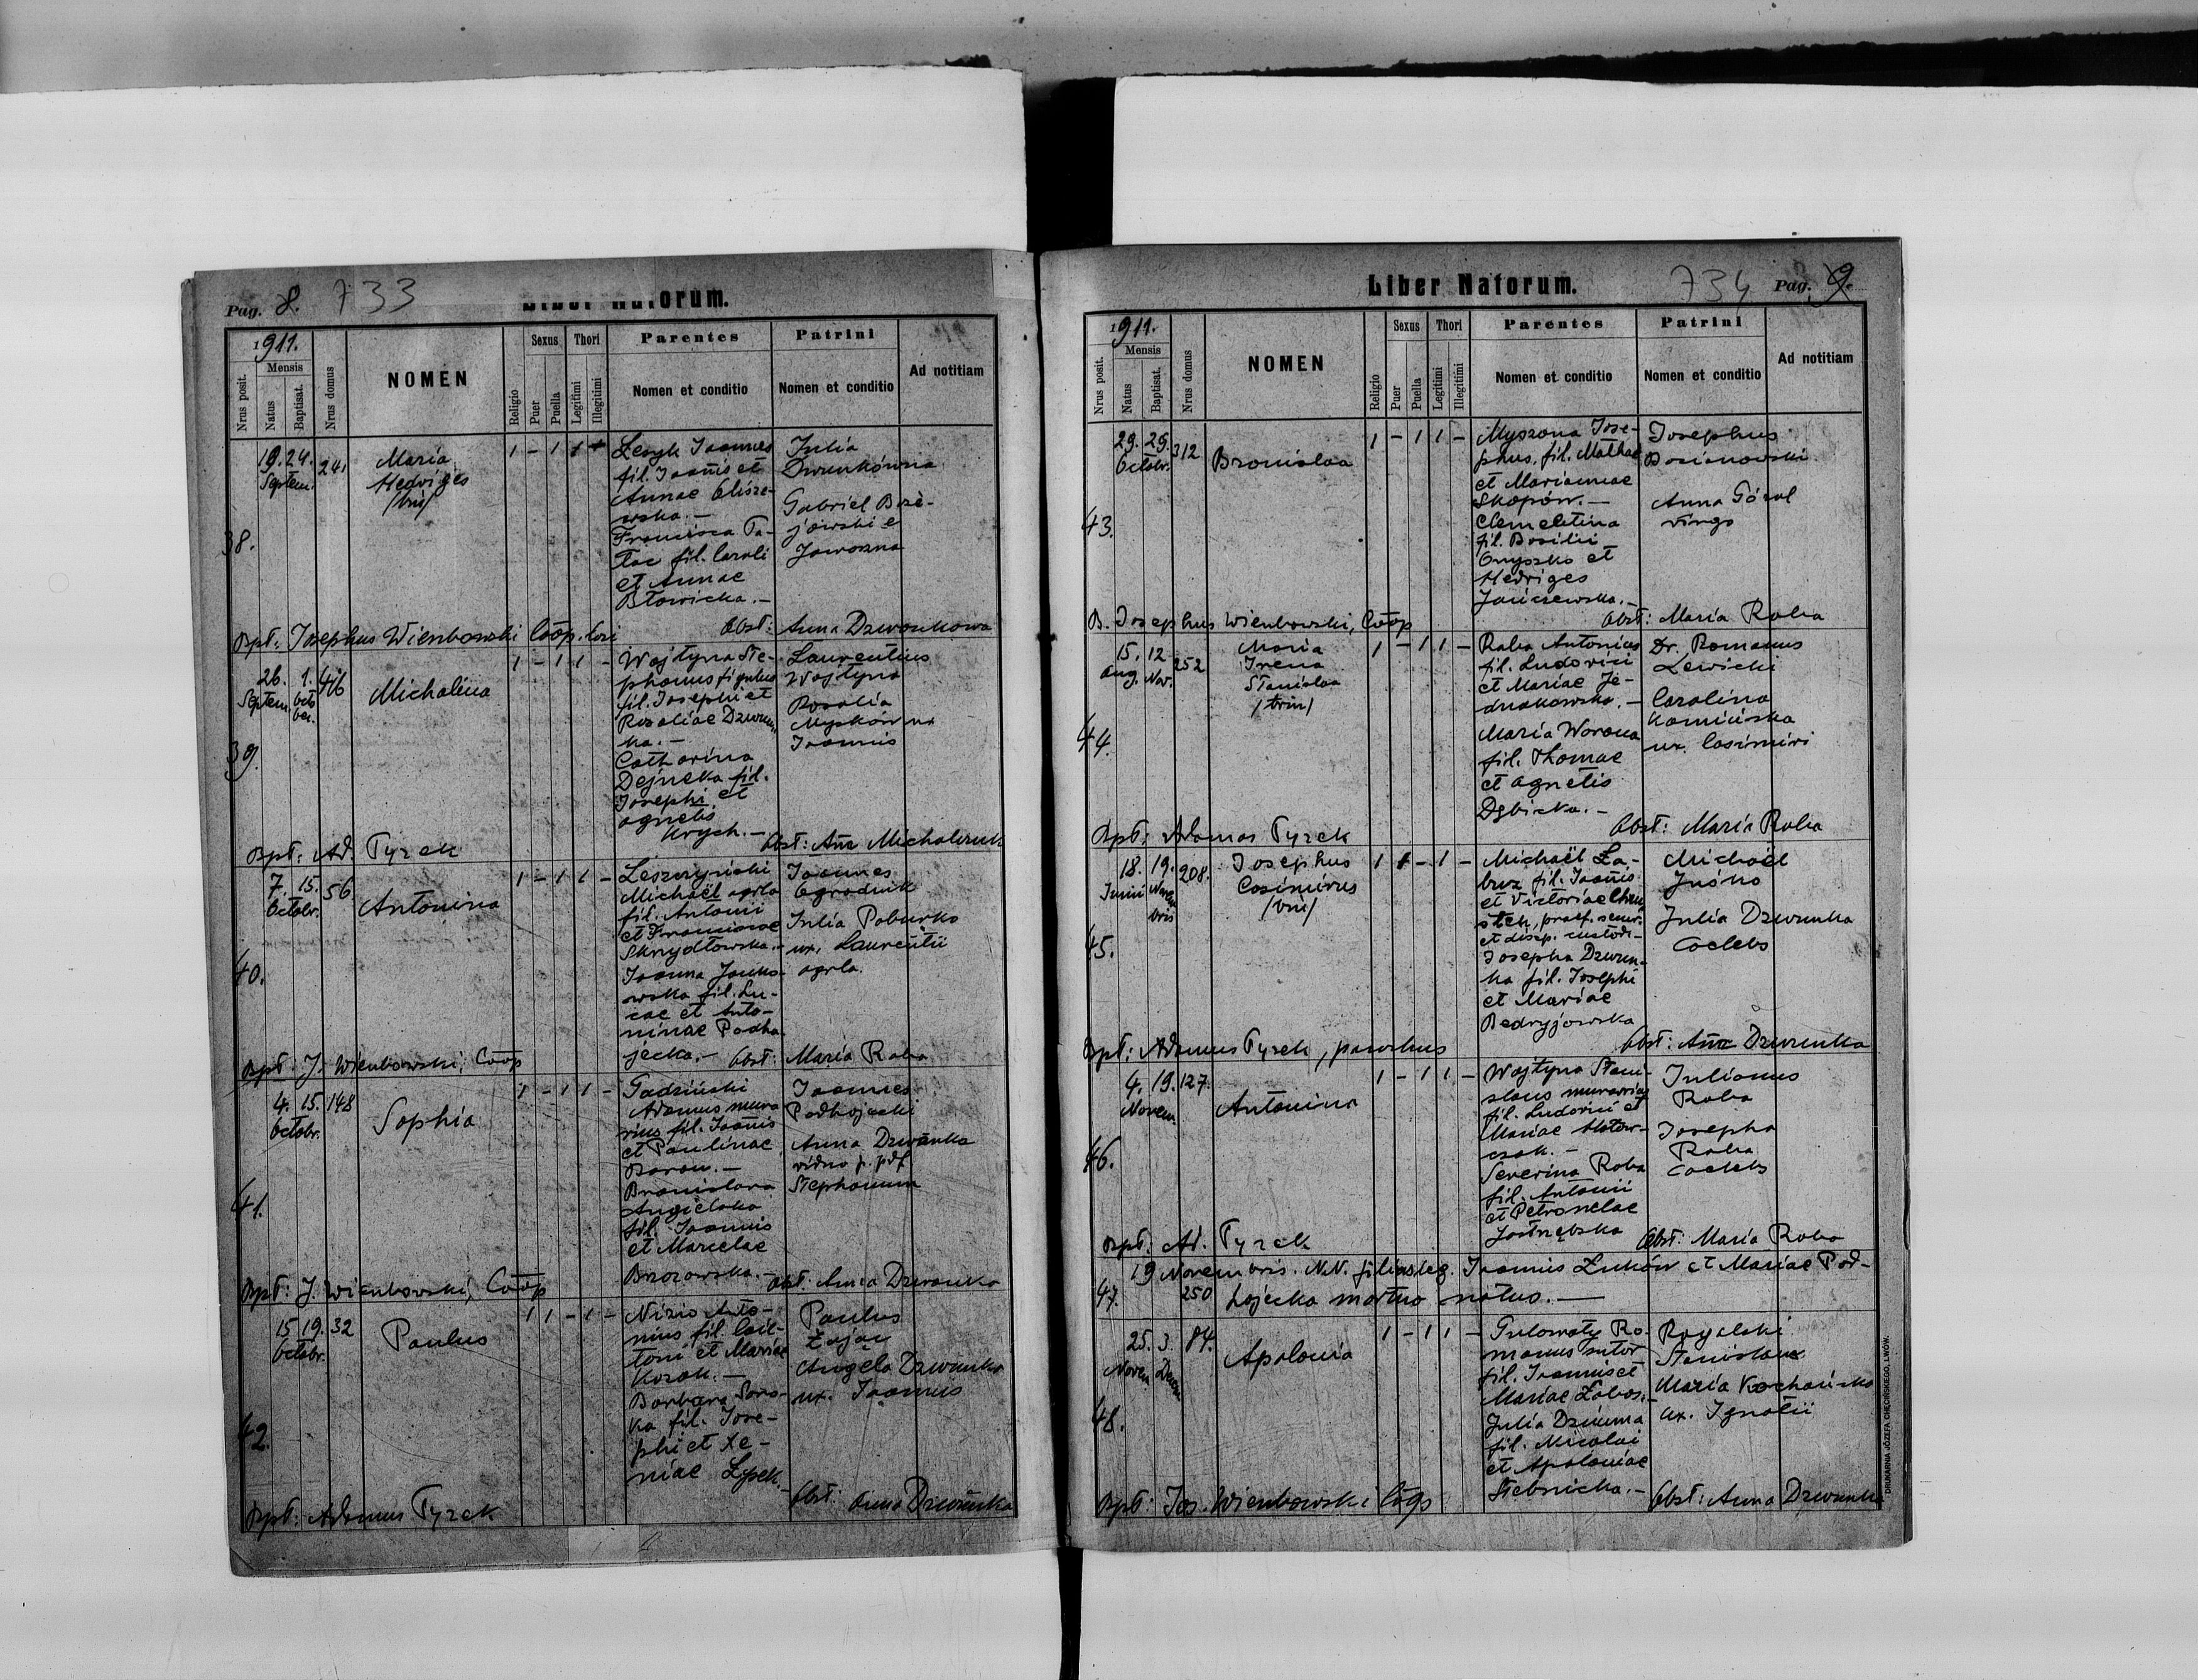 Pag. 8. 733
Liber Natorum.
1911.
Nrus posit.
Mensis
Natus
Baptisat.
Nrus domus
NOMEN
Religio
Sexus
Puer
Puella
Thori
Legitimi
Illegitimi
Parentes
Nomen et conditio
Patrini
Nomen et conditio
Ad notitiam
38.
19. 24.
Septem.
241
Maria
Hedviges
/bin/
1 - 1 1
Lesyk Joannes
fil. Joanis et
Annae Olisze-
wska. -
Francisca Ta-
tac fil. Caroli
et Annae
Błowicka. -
Julia
Dwunkówna
Gabriel Bre-
jowski e
Jaworzna
Bpt: Josephus Wienbowski Coop.
Obst: Anna Dzwonkowa
39.
26. 1.
Septem. Octo
ber.
416
Michalina
1 - 1 1 -
Wojtyna Ste-
phanus figulus
fil. Josephi et
Rosaliae Dzwon
ka. -
Catharina
Dejneka fil.
Josephi et
Agnetis
Krych. -
Laurentius
Wojtyna
Rosalia
Myskówna
Joannis
Bpt: Ad. Tyrek
Obst: Anna Michalczuk
40.
7. 15.
Octobr.
56
Antonina
1 - 1 1 -
Leszczyński
Michaël agrla
fil. Antonii
et Franciscae
Skrzydłowska. -
Joanna Janko-
wska fil. Lu-
cae et Anto-
ninae Podha
jecka. -
Joannes
Ogrodnik
Julia Poburko
ux. Laurentii
agrla.
Bpt: J. Wienbowski, Coop
Obst: Maria Roba
41.
4. 15.
Octobr.
148
Sophia
1 - 1 1 -
Gadziński
Adamus mura
rius fil. Joanis
et Paulinae
Baran. -
Bronislava
Angielska
fil. Joannis
et Marcelae
Brzozowska. -
Joannes
Podhajecki
Anna Dzwonka
vidua p. pdf
Stephanum
Bpt: J. Wienbowski, Coop
Obst: Anna Dzwonka
42.
15 19.
Octobr.
32
Paulus
1 1 - 1 -
Nizio Anto-
nius fil.
et Mariae
Kozak. -
Barbara Soro-
ka fil. Jose-
phi et Xe-
niae Łysek. -
Paulus
Zając
Angela Dzwonka
ux. Joannis
Bpt: Adamus Tyrek
Obst: Anna Dzwonka
Liber Natorum.
734 Pag. 9.
1911.
Nrus posit.
Mensis
Natus
Baptisat.
Nrus domus
NOMEN
Religio
Sexus
Puer
Puella
Thori
Legitimi
Illegitimi
Parentes
Nomen et conditio
Patrini
Nomen et conditio
Ad notitiam
43.
29. 29.
Octobr.
312
Bronislaa
1 - 1 1 -
Myszona Jose-
phus, fil. Mathae
et Mariannae
Skopów. -
Clementina
fil. Basilii
Onyszko et
Hedviges
Janiszewska. -
Josephus
Bosianowski
Anna Górol
virgo
B. Josephus Wienbowski, Coop
Obst: Maria Roba
44.
15. 12
Aug. Nov.
252
Maria
Irena
Stanislaa
/trin/
1 - 1 1 -
Roba Antonius
fil. Ludovici
et Mariae Je-
dnakowska. -
Maria Worona
fil. Thomae
et Agnetis
Dębicka. -
Dr. Romanus
Lewicki
Carolina
Kamińska
ux. Casimiri
Bpt: Adamus Tyrek
Obst: Maria Roba
45.
18. 19.
Junii Novem
bris
208.
Josephus
Casimirus
/bin/
1 1 - 1 -
Michaël Ła-
buz fil. Joanis
et Victoriae
Josepha Dzwon-
ka fil. Josephi
et Mariae
Bedryjowska
Michaël
Juśko
Julia Dzwonka
Coelebs
Bpt: Adamus Tyrek, parochus
Obst: Anna Dzwonka
46.
4. 19.
Novem
127.
Antonina
1 - 1 1 -
Wojtyna Stani-
slaus murarius
fil. Ludovici et
Mariae
Severina Roba
fil. Antonii
et Petronelae
Jastrzębska
Julianus
Roba
Josepha
Roba
Coelebs
Bpt: Ad. Tyrek
Obst: Maria Roba
47.
19 Novembris. N.N. filius leg. Joannis Żuków et Mariae Pod-
250 hajecka mortuo natus. -
48.
25. 3.
Novem Decem
84.
Apolonia
1 - 1 1 -
Gulowaty Ro-
manus sutor
fil. Joannis et
Mariae Łobos. -
Julia Dziuma
fil. Nicolai
et Apoloniae
Stebnicka. -
Rogalski
Stanislaus
Maria Kochańska
ux. Ignatii
Bpt: Jos. Wienbowski Coop
Obst: Anna Dzwonka
DRUKARNIA JÓZEFA CHĘCIŃSKIEGO, LWÓW.